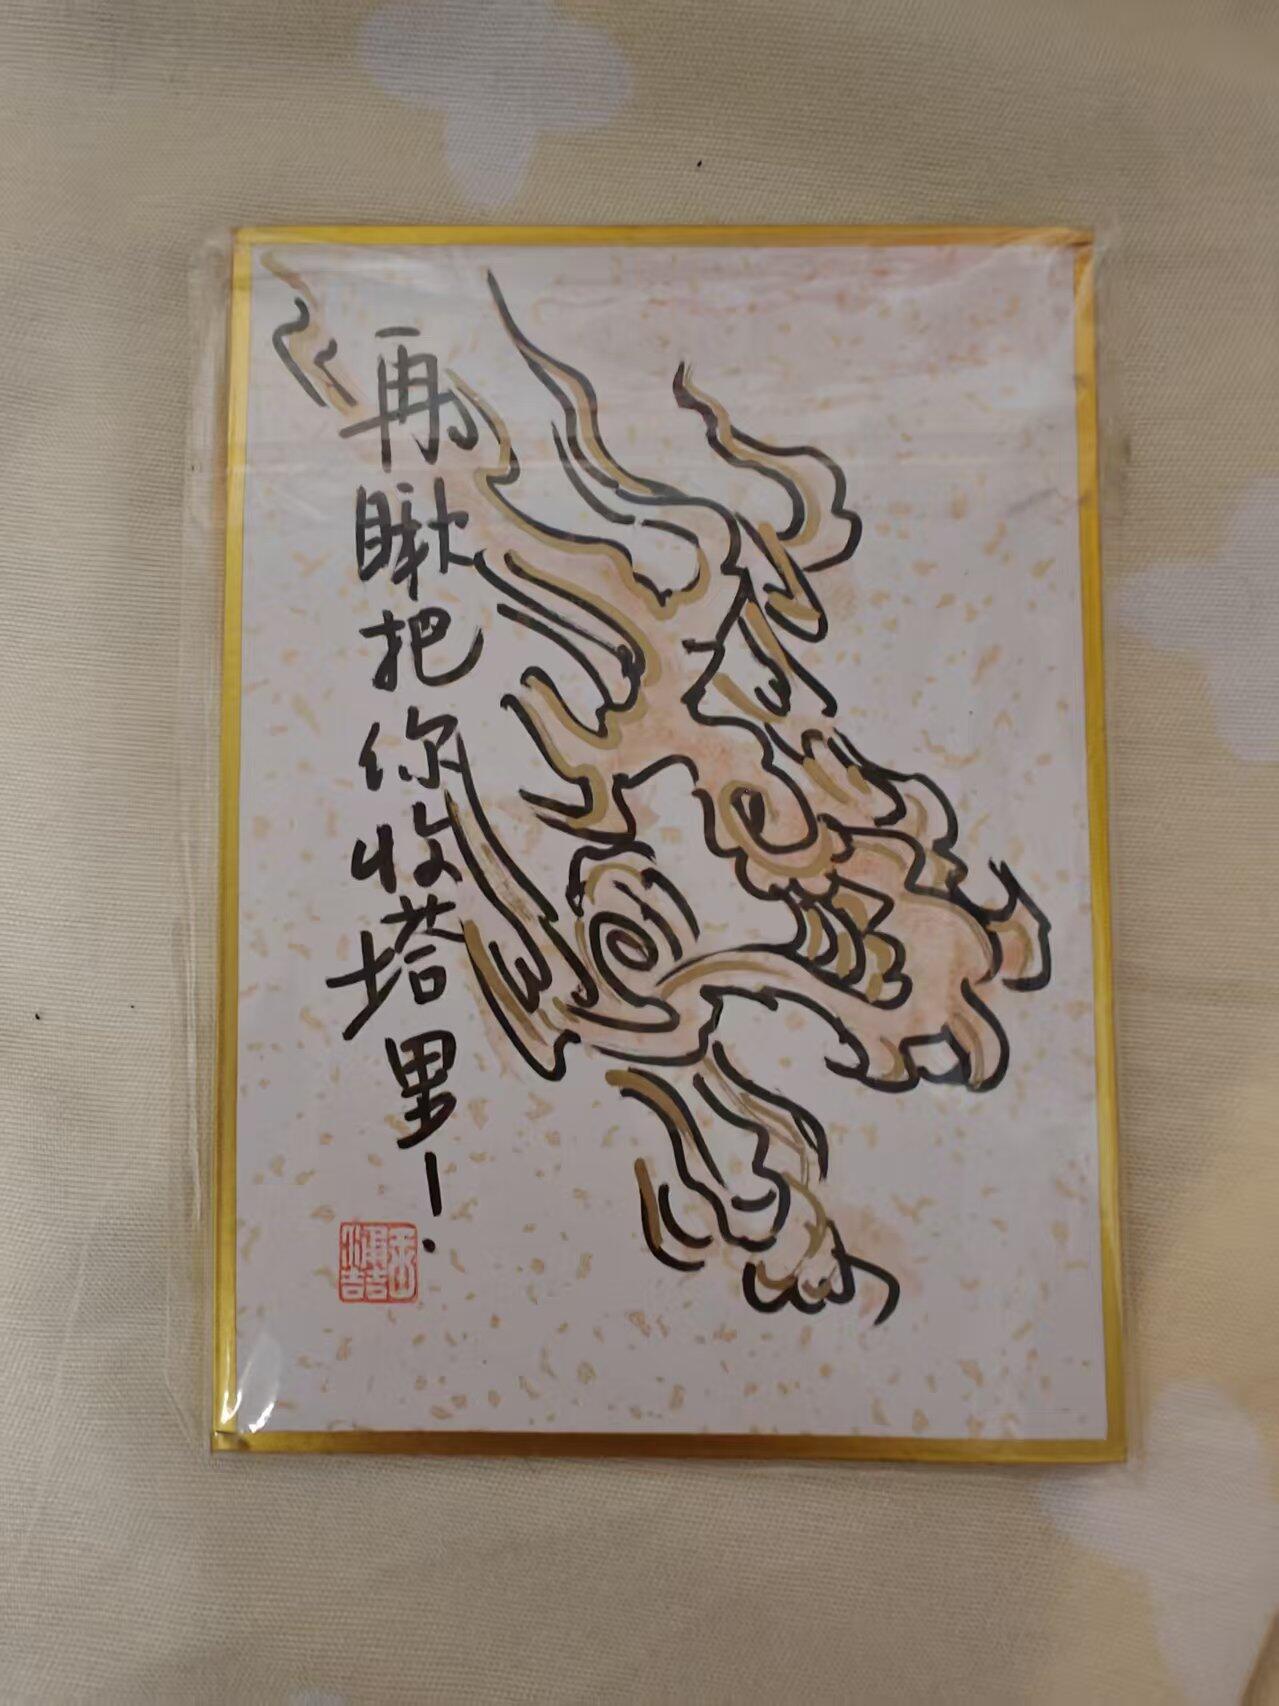 再瞅把你收塔里!